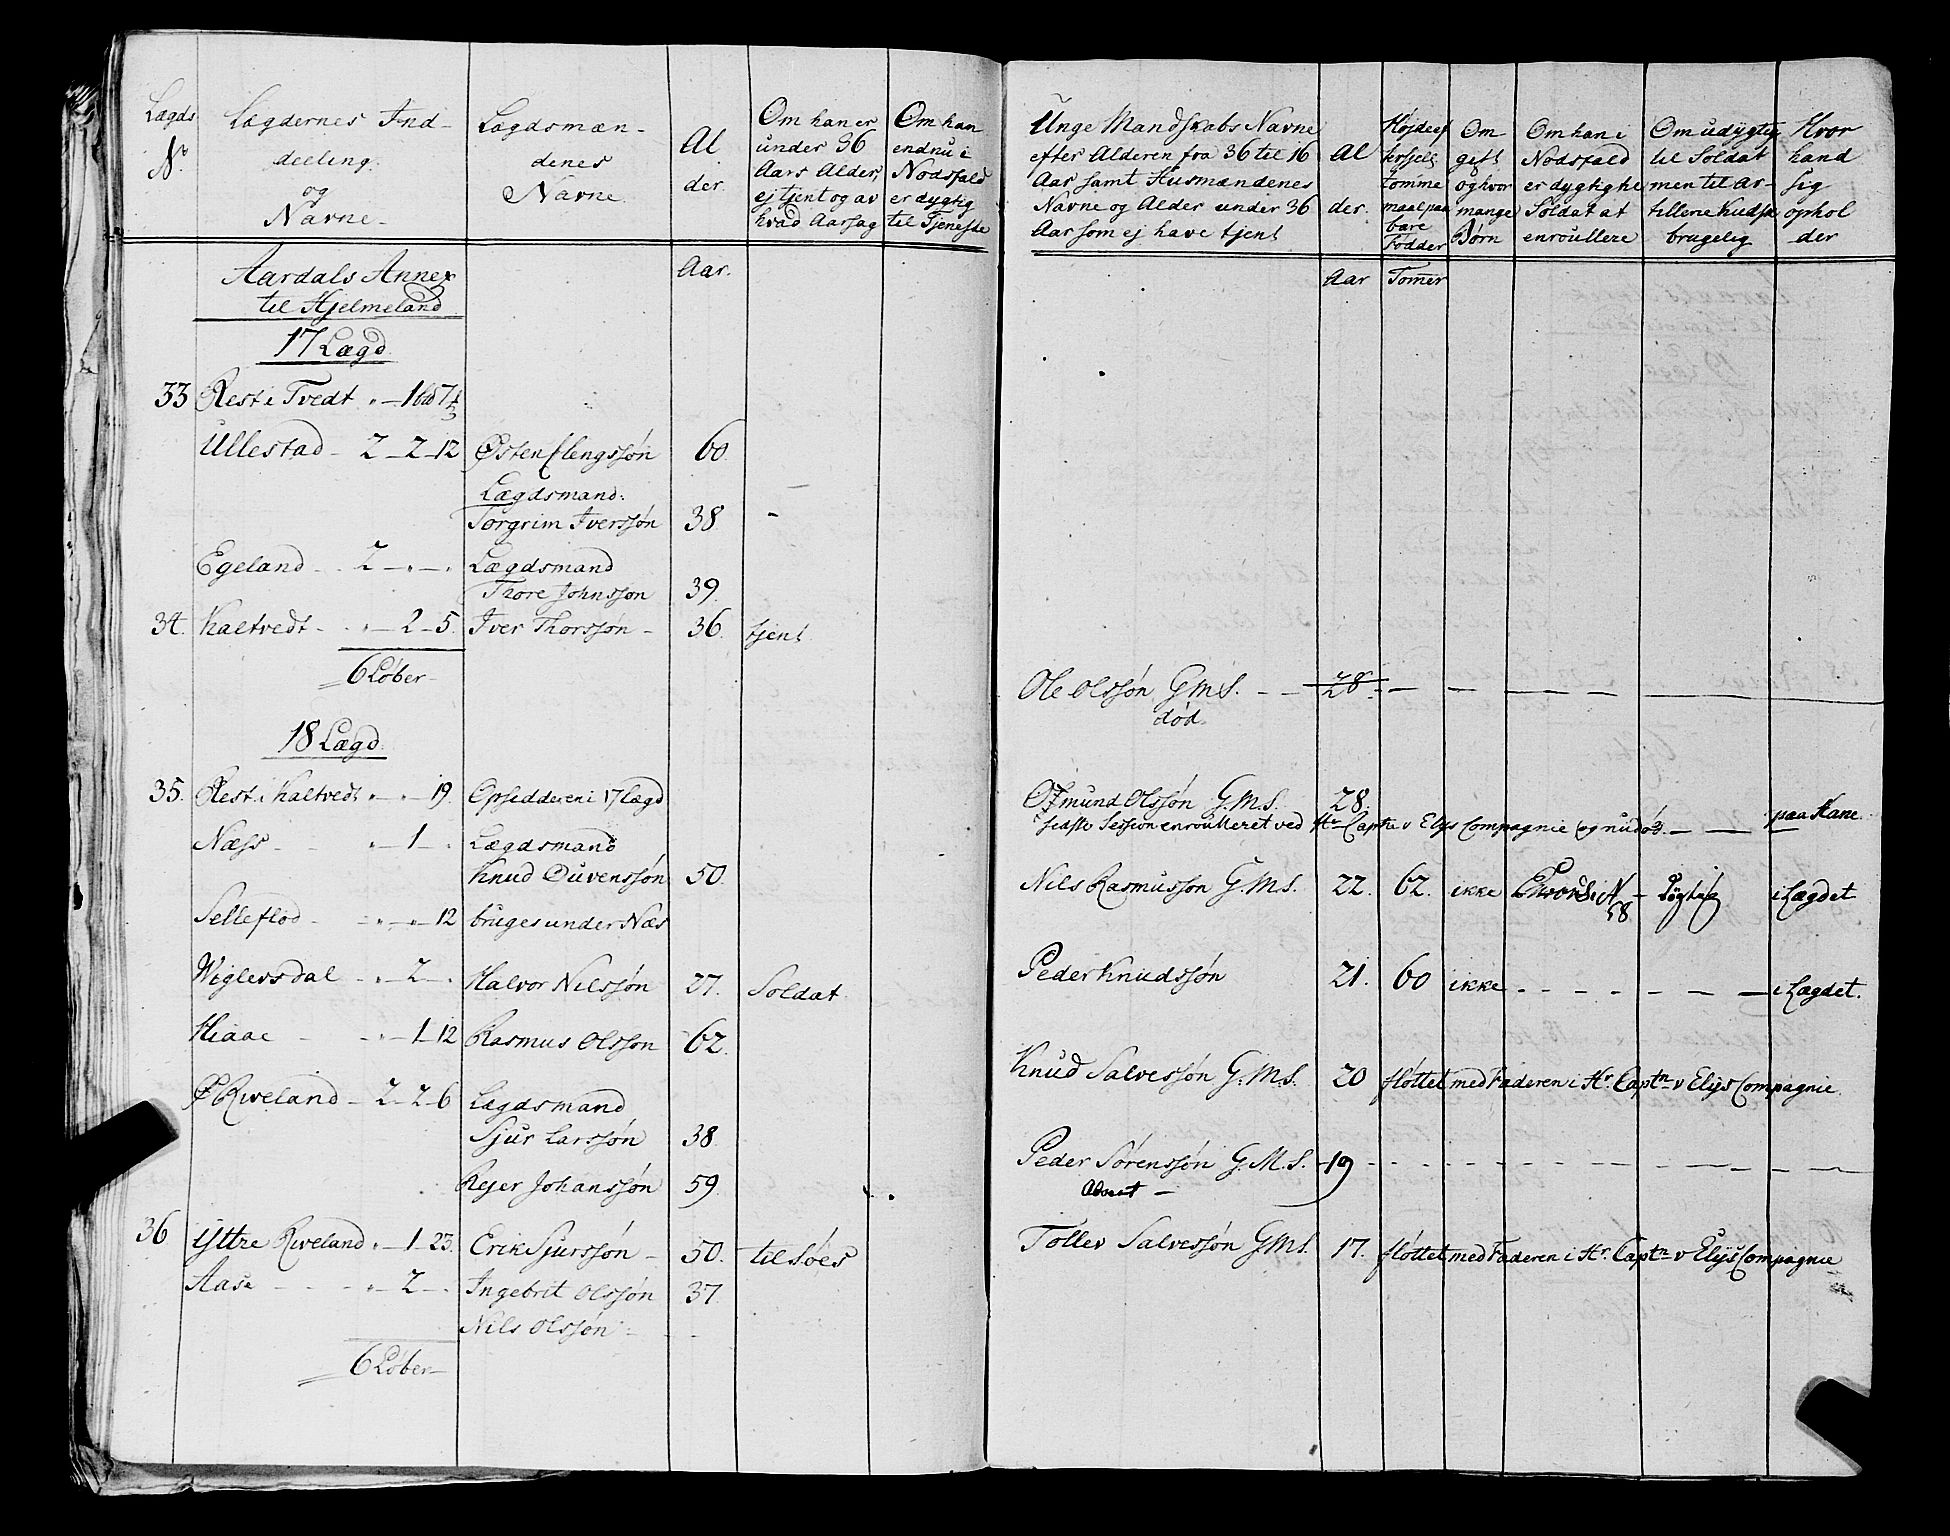 Lægds
No.
Lægdernes Ind-
deeling.
og
Navne-
Lagdsmæn-
denes
Navne.
Al
der.
Om han er
under 36
Aars Alder,
ej tjent og av
hvad Aarsag
Om han
endnu i
Nodsfald
er dygtig
til Tjeneste
Aardals Annex
til Hjelmeland
Aar.
17 Lægd
33 Rest i Tvedt " - 1
Ullestad - 2 - 2 - 12 Østen Elengssøn 60.
Lægdsmand:
Torgrim Iverssøn 38 -
Egeland - - 2 - " - " Lægdsmand
Thore Johnssøn 39.
34. Kaltvedt - - " - 2 - 5. Iver Thorssøn - 36. tjent
6 Løber-
18 Lægd.
35. Rest i Kaltvedt " - " - 19. Opsidderen i 17 lægd
Næss - - - " - 1 - " Lægdsmand
Knud Duvenssøn 50.
Selleflod - - " - " - 12 bruges under Næs
Wiglersdal - " - 2 - " Halvor Nilssøn 27. Soldat
Hiaae - - - " - 1 - 12 Rasmus Olssøn 62.
Ø Riveland - 2 - 2 - 6 Lægdsmand
Sjur Larssøn 38.
Rejer Johanssøn 59.
36 Yttre Riveland " - 1 - 23. Erik Sjurssøn - 50. til Søes
Aase - - - - " - 2 - " Ingebrit Olssøn 37.
Nils Olssøn - - -
6 Løber-
Unge Mandskabs Navne
efter Alderen fra 36 til 16
Aar samt Husmændenes
Navne og Alder under 36
Aar som ej have tjent
Al
der.
Højde ef
tomme
maal paa
bare
Fødder
Om
gift
og hvor
mange
Børn
Om han i
Nodsfald
er dygtig
Soldat at
enroullere
Om udygtig
til Soldat
men til Ar-
tillene Kudsk
brugelig
Hvor
hand
sig
ophol
der
Aar Tomer
Ole Olssøn G.M.S. - - 28 - - - -
død.
Osmund Olssøn G.M.S. 28.
sidste Session enroulleret ved Hr Captn v Elys Compagnie og nu - - paa Kane
Nils Rasmusson G.M.S. 22. 62. ikke - Dygtig i Lægdet
58
Peder Knudssøn 21. 60 ikke - - - - - - - i Lægdet.
Knud Salvessøn G.M.S. 20 fløttet med Faderen i Hr. Captn v Elys Compagnie.
Peder Sørenssøn G.M.S. - 19 - - - - - -
Tollev Salvessøn G.M.S. 17. fløttet med Faderen i Hr. Captn v Elys Compagnie